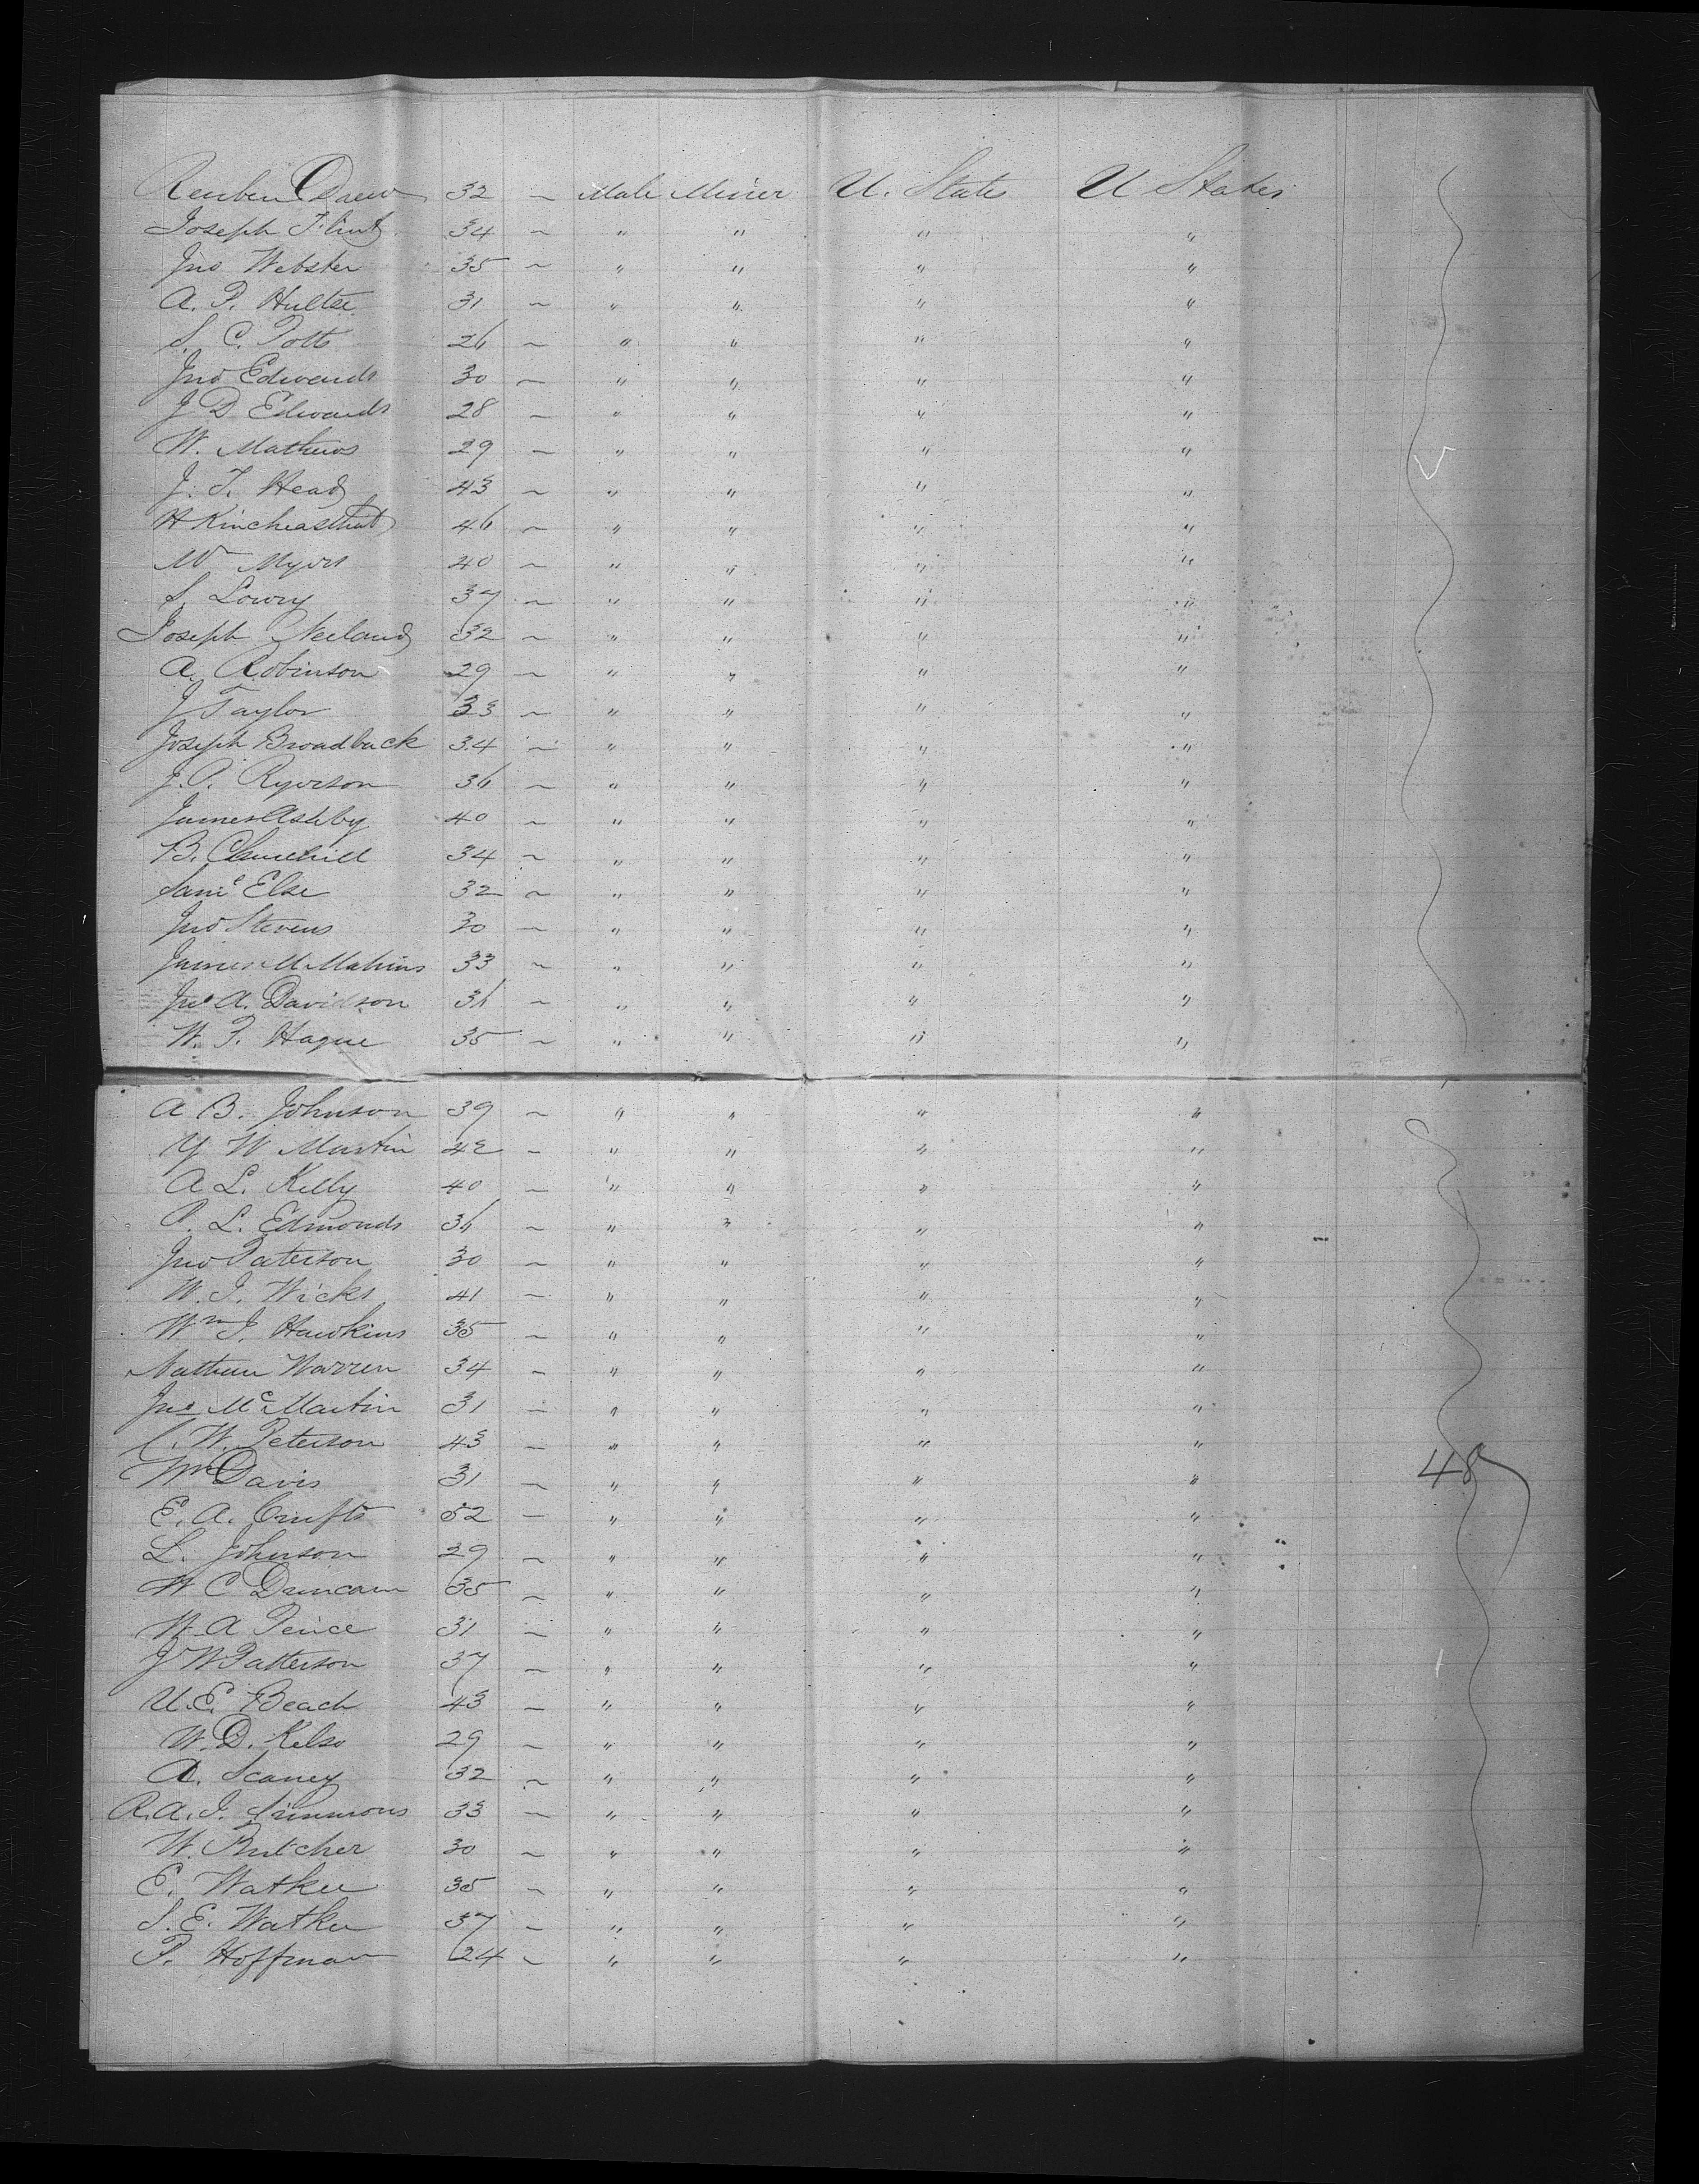 Reuben Drew 32 ~ Male Miner U. State U States
Joseph Flint 34 ~ " " " "
Jno Webster 35 ~ " " " "
A. P. Hulter 31 ~ " " " "
S. C. Potts 26 ~ " " " "
Jno Edwards 30 ~ " " " "
J D Edwards 28 ~ " " " "
W. Mathews 29 ~ " " " "
J. T. Head 43 ~ " " " "
H 46 ~ " " " "
Wm Myers 40 ~ " " " "
S. Lowry 37 ~ " " " "
Joseph Neeland 32 ~ " " " "
A. Robinson 29 ~ " " " "
J Taylor 33 ~ " " " "
Joseph Broadback 34 ~ " " " "
J. P. Ryerson 36 ~ " " " "
James Ashby 40 ~ " " " "
B. Churchill 34 ~ " " " "
Saml Else 32 ~ " " " "
Jno Stevens 30 ~ " " " "
James M Mahins 33 ~ " " " "
Jno A. Davidson 36 ~ " " " "
W. F. Hague 35 ~ " " " "
A B. Johnson 39 ~ " " " "
Y W Martin 42 ~ " " " "
A L. Kelly 40 ~ " " " "
P. L. Edmonds 36 ~ " " " "
Jno Paterson 30 ~ " " " "
W. J. Wicks 41 ~ " " " "
Wm J. Hawkins 35 ~ " " " "
Nathan Warren 34 ~ " " " "
Jno McMartin 31 ~ " " " "
C. W. Peterson 43 ~ " " " "
Wm Davis 31 ~ " " " " 48
E. A. Crufts 52 ~ " " " "
L. Johnson 29 ~ " " " "
W C Duncan 35 ~ " " " "
W A Peirce 31 ~ " " " "
J W Patterson 37 ~ " " " "
U. E. Beach 43 ~ " " " "
W. D. Kelso 29 ~ " " " "
A. Scaney 32 ~ " " " "
R. A. J. Simmons 33 ~ " " " "
W. Butcher 30 ~ " " " "
E. Watker 35 ~ " " " "
S. E. Watker 37 ~ " " " "
P. Hoffman 24 ~ " " " "